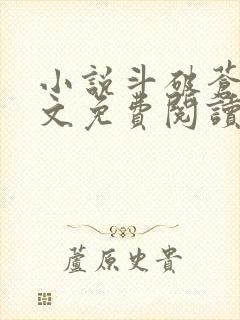 小説斗破蒼
文免費閱讀
蘆原史貴